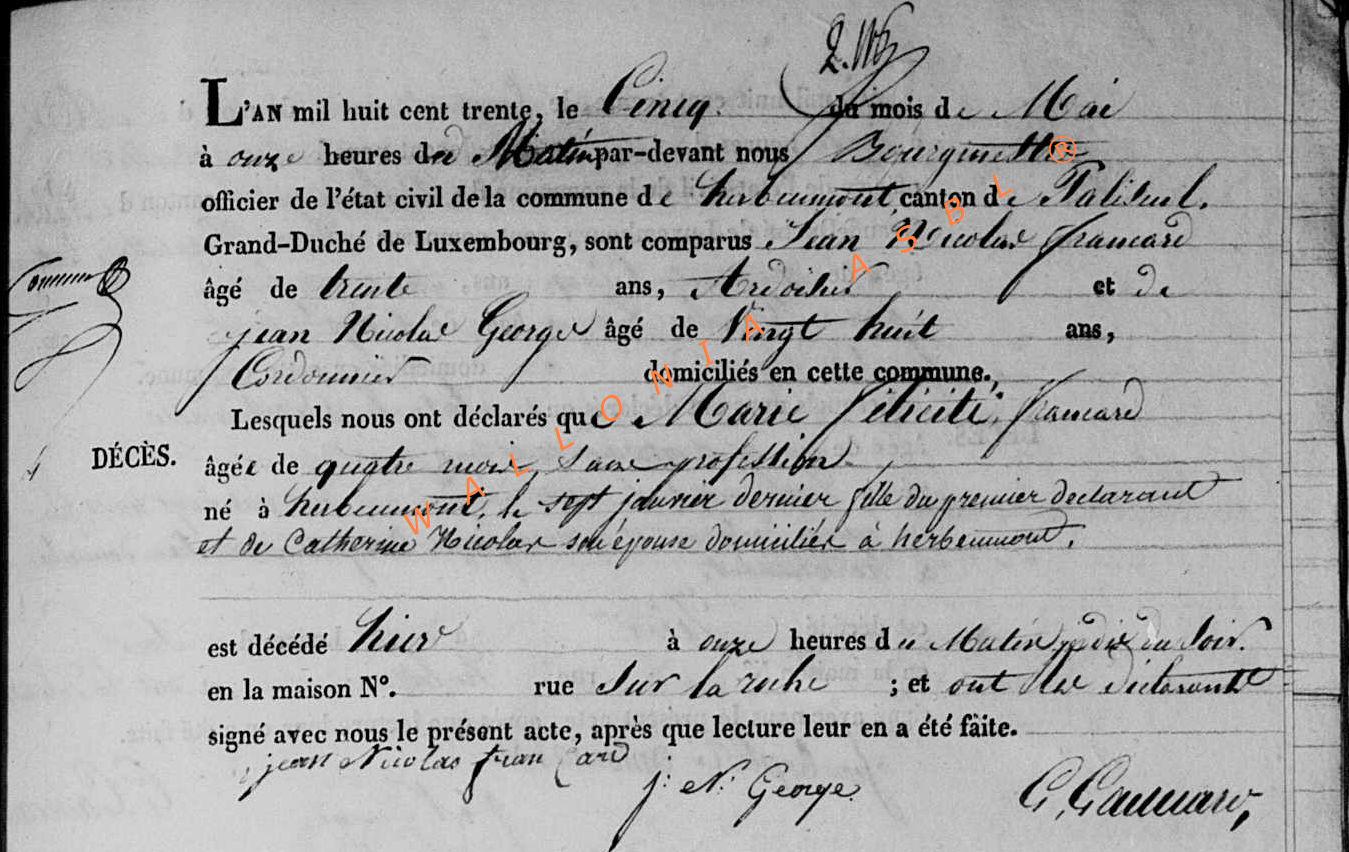 L'AN mil huit cent trente, le Cinq du mois de Mai
à onze heures du Matin par-devant nous Bourgmestre
officier de l'état civil de la commune de herbeumont, canton de Paliseul.
Grand-Duché de Luxembourg, sont comparus Jean Nicolas francard
âgé de trente ans, Ardoisier et de
jean Nicolas George âgé de Vingt huit ans,
Cordonnier domiciliés en cette commune.
Lesquels nous ont déclarés que Marie félicité francard
DÉCÈS.
âgée de quatre mois, Sans profession
né à herbeumont, le sept janvier dernier fille du premier declarant
et de Catherine Nicolas son épouse domiciliés à herbeumont.
est décédé hier à onze heures du Matin du Soir.
en la maison N°. rue Sur la ruche ; et ont les déclarants
signé avec nous le présent acte, après que lecture leur en a été faite.
jean Nicolas francard
j. N. George
WALLONIA ASBL ®